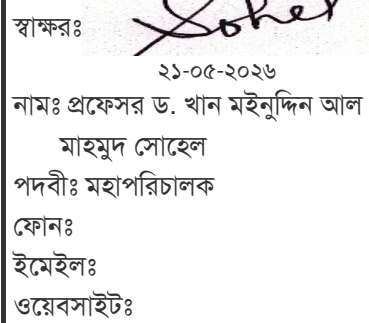 স্বাক্ষরঃ Sohel
২১-০৫-২০২৬
নামঃ প্রফেসর ড. খান মইনুদ্দিন আল
মাহমুদ সোহেল
পদবীঃ মহাপরিচালক
ফোনঃ
ইমেইলঃ
ওয়েবসাইটঃ